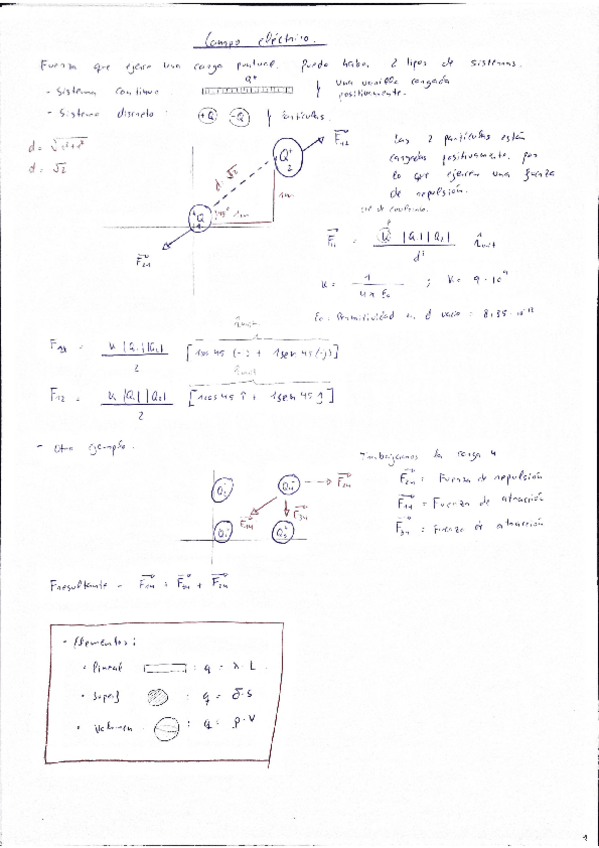 Campo eléctrico.
Fuerza que ejerce una carga puntual. Puede haber 2 tipos de sistemas.
- Sistema continuo Q+ una varilla cargada
positivamente.
- Sistema discreto +Q -Q partículas.
d = √1²+1²
d = √2
F12
Q+
2
d √2
1m
+Q
1
45°
1m
F21
Las 2 partículas están
cargadas positivamente, por
lo que ejercen una fuerza
de repulsión.
F = K |Q1| |Q2| / d²
K = 1 / 4π ε0 ; K = 9 · 10⁹
ε0: Permitividad en el vacío =
F21 = K |Q1| |Q2| / 2 [1cos 45 (-i) + 1sen 45 (-j)]
F12 = K |Q1| |Q2| / 2 [1cos 45 i + 1sen 45 j]
- Otro ejemplo.
Trabajamos la carga 4
F24 = Fuerza de repulsión
F14 = Fuerza de atracción
F34 = Fuerza de atracción
F24
F14
F34
Fresultante =
- Elementos:
· Lineal : q = λ · L
· Superf : q = σ · S
· Volumen : q = ρ · V
1